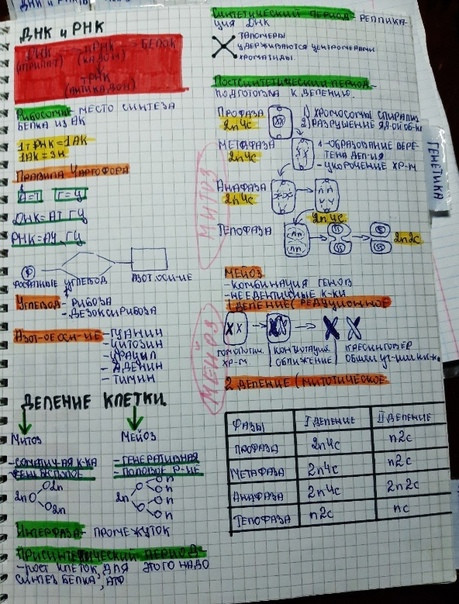 ДНК и РНК
ДНК → иРНК → БЕЛОК
(КОДОН)
тРНК
(АНТИКОДОН)
Рибосомы- место синтеза
белка из АК
1тРНК=1АК
1АК=3Н
Правила Чаргоффа
А=Т Г=Ц
ДНК=АТ ГЦ
РНК=АУ ГЦ
углевод
азот.осн-ие
Углевод - рибоза
- дезоксирибоза
Азот-ое осн-ие - гуанин
- цитозин
- урацил
- аденин
- тимин
Деление клетки.
Митоз
- соматич-ая к-ка
- бесполое
2n
2n
2n
Мейоз
- генеративная
- половое р-ие
2n
n
n
n
n
Интерфаза- промежуток
Пресинтетический период
-рост клеток, для этого надо
синтез белка, АТФ
Синтетический период- реплика-
ция ДНК
теломеры
удерживаются центромерами
хроматиды
Постсинтетический период-
подготовка к делению.
Профаза
2n4c
1) хромосомы спирализ.
2) разрушение яд-ой об-ки
Метафаза
2n4c
- образование вере-
тена дел-ия
- укорочение хр-м
Анафаза
2n4c
2n4c
Телофаза
2n2c
МИТОЗ
ГЕНЕТИКА
Мейоз
- комбинация генов
- неидентичные к-ки
1 деление (редукционное
МЕЙОЗ
гомологич.
хр-м
конъюгация
сближение
кроссинговер
2 деление (митотическое
Фазы I деление II деление
Профаза 2n4c n2c
Метафаза 2n4c n2c
Анафаза 2n4c 2n2c
Телофаза n2c nc